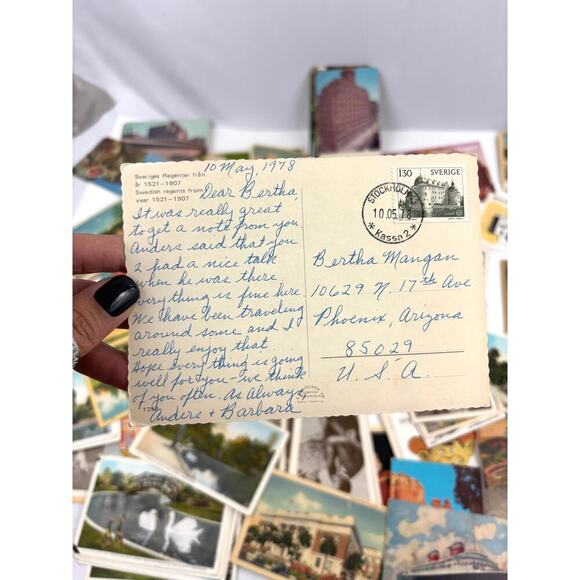 10 May, 1978
Sveriges Regenter från
år 1521-1907
Swedish regents from
year 1521-1907
Dear Bertha,
It was really great
to get a note from you
Anders said that you
2 had a nice talk
when he was there.
everything is fine here
We have been traveling
around some and I
really enjoy that.
Hope every thing is going
well for you - we think
of you often. As Always
Anders + Barbara
130 SVERIGE
STOCKHOLM
10.05.78
* Kassa 2 *
Bertha Mangan
10629 N. 17th Ave
Phoenix, Arizona
85029
U.S.A.